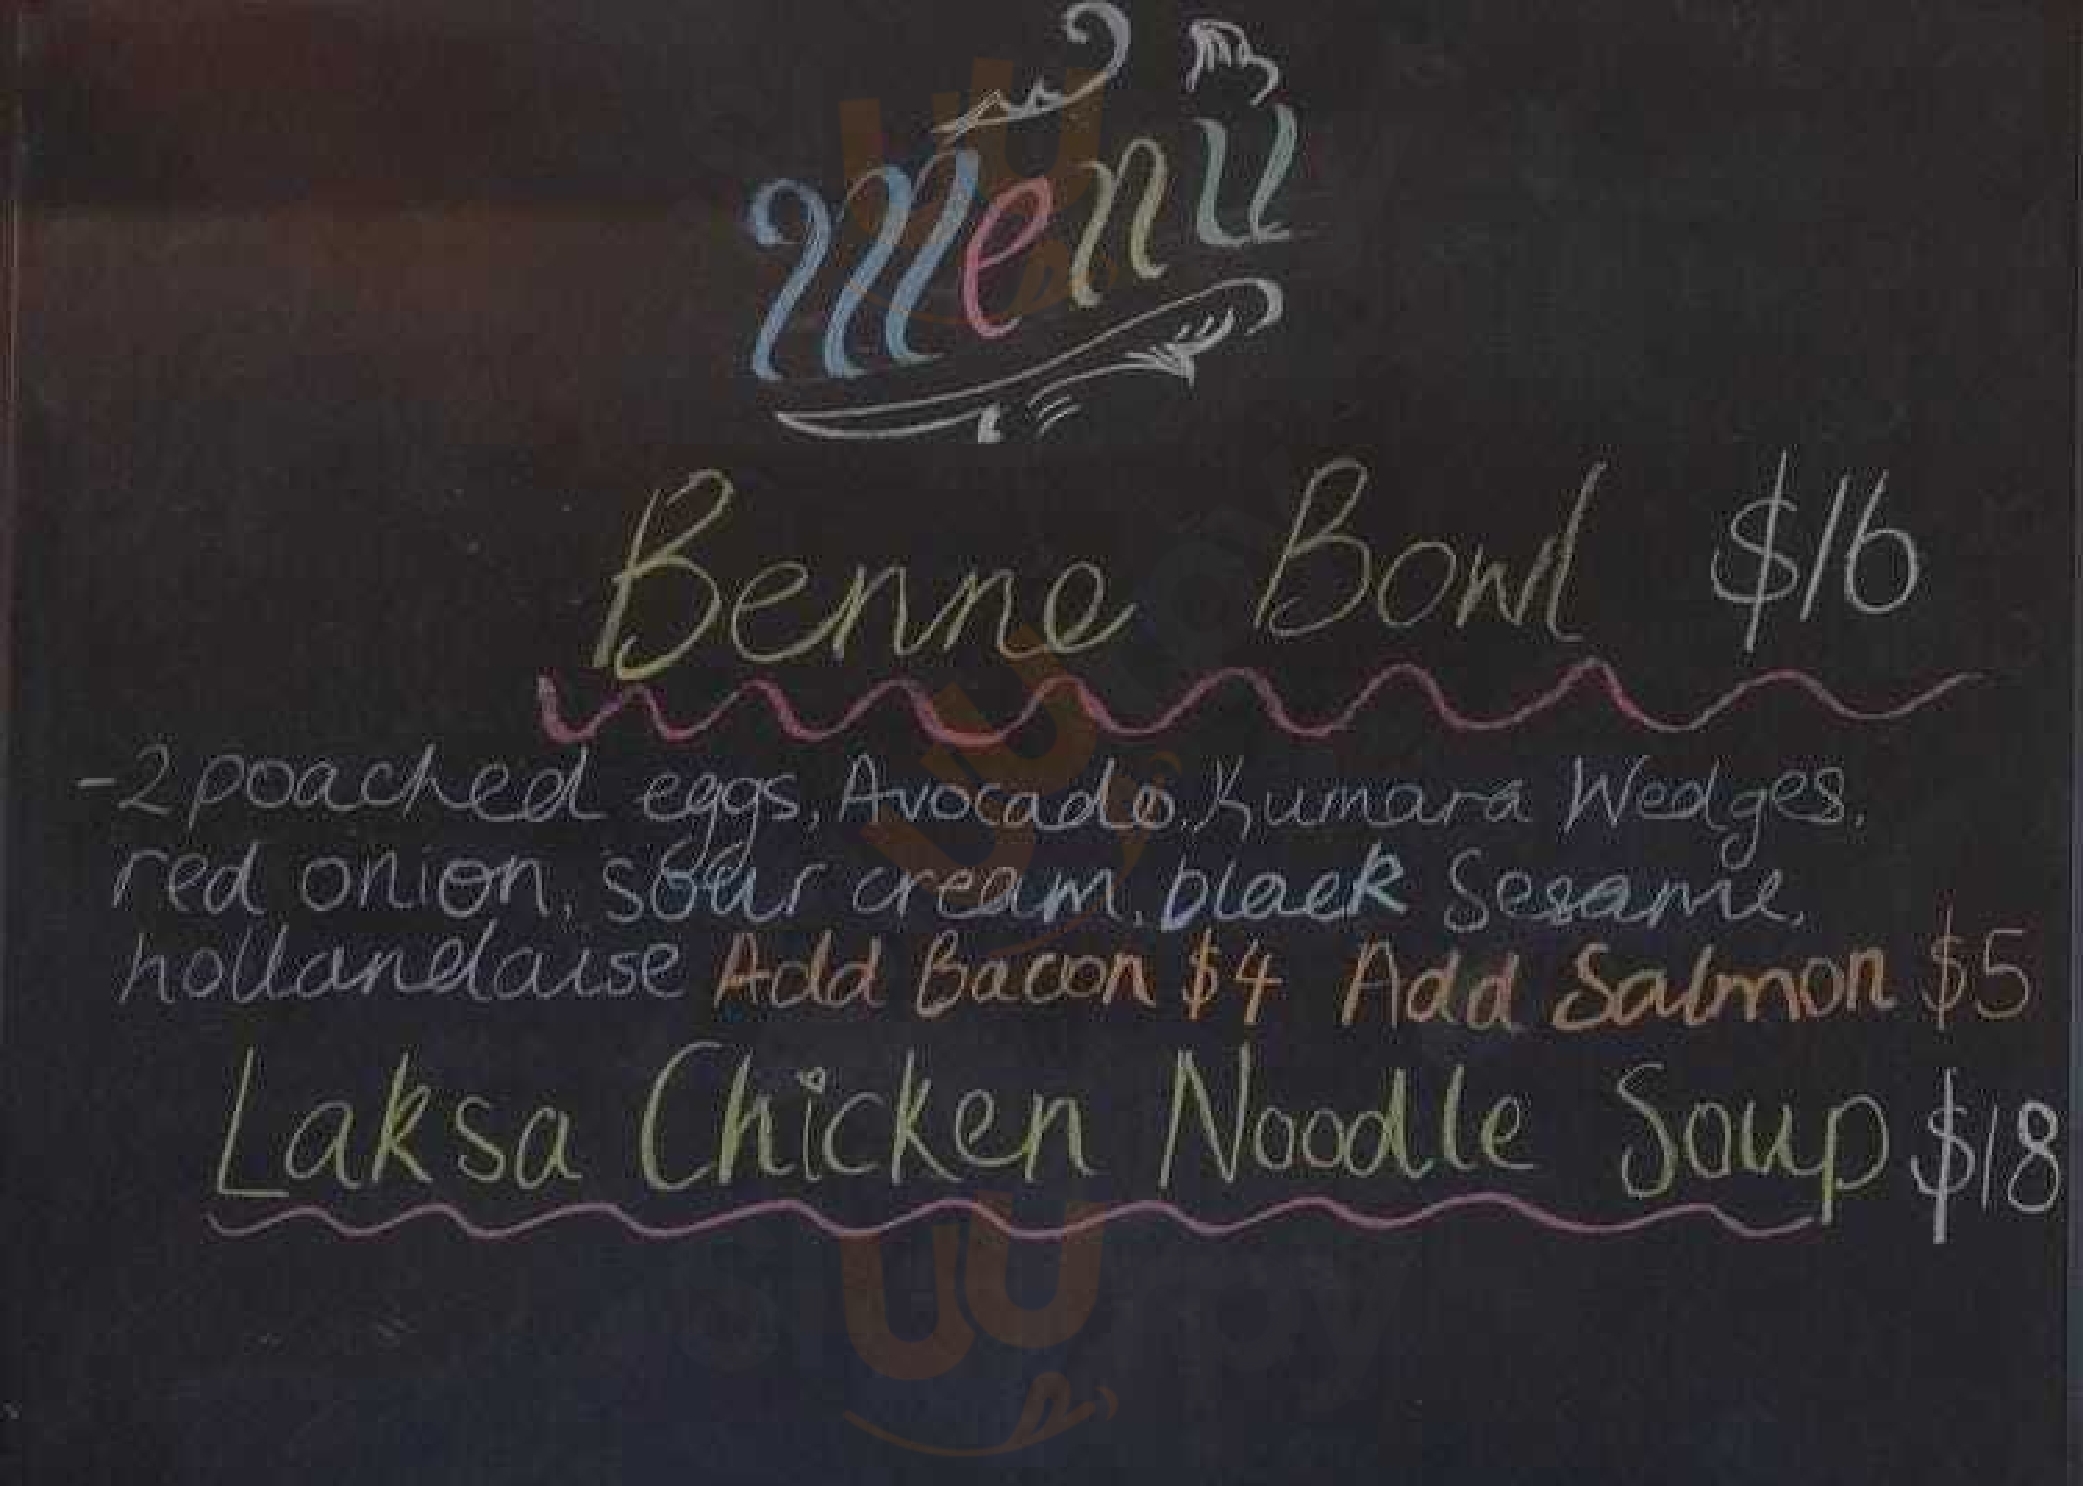 Menu
Benne Bowl $16
-2 poached eggs, Avocado, Kumara Wedges,
red onion, sour cream, black Sesame,
hollandaise Add Bacon $4 Add Salmon $5
Laksa Chicken Noodle Soup $18